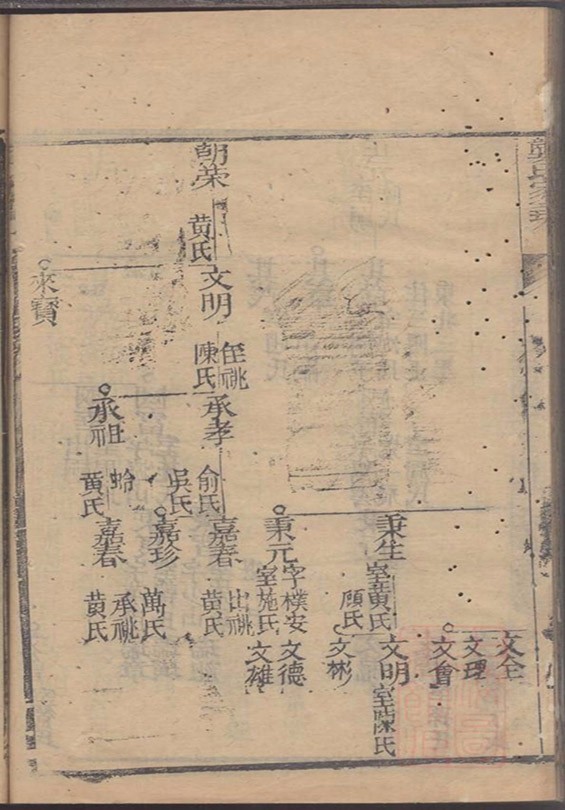 文全
文理
文會
秉生
室黄氏
顾氏
文明
室陳氏
文彬
秉元
字樸安
室施氏
文德
文雄
朝荣
黄氏
文明
侄祧
陳氏
承孝
俞氏
吳氏
嘉春
出祧
黄氏
嘉珍
萬氏
承祖
蛉
黄氏
嘉春
承祧
黄氏
來寳